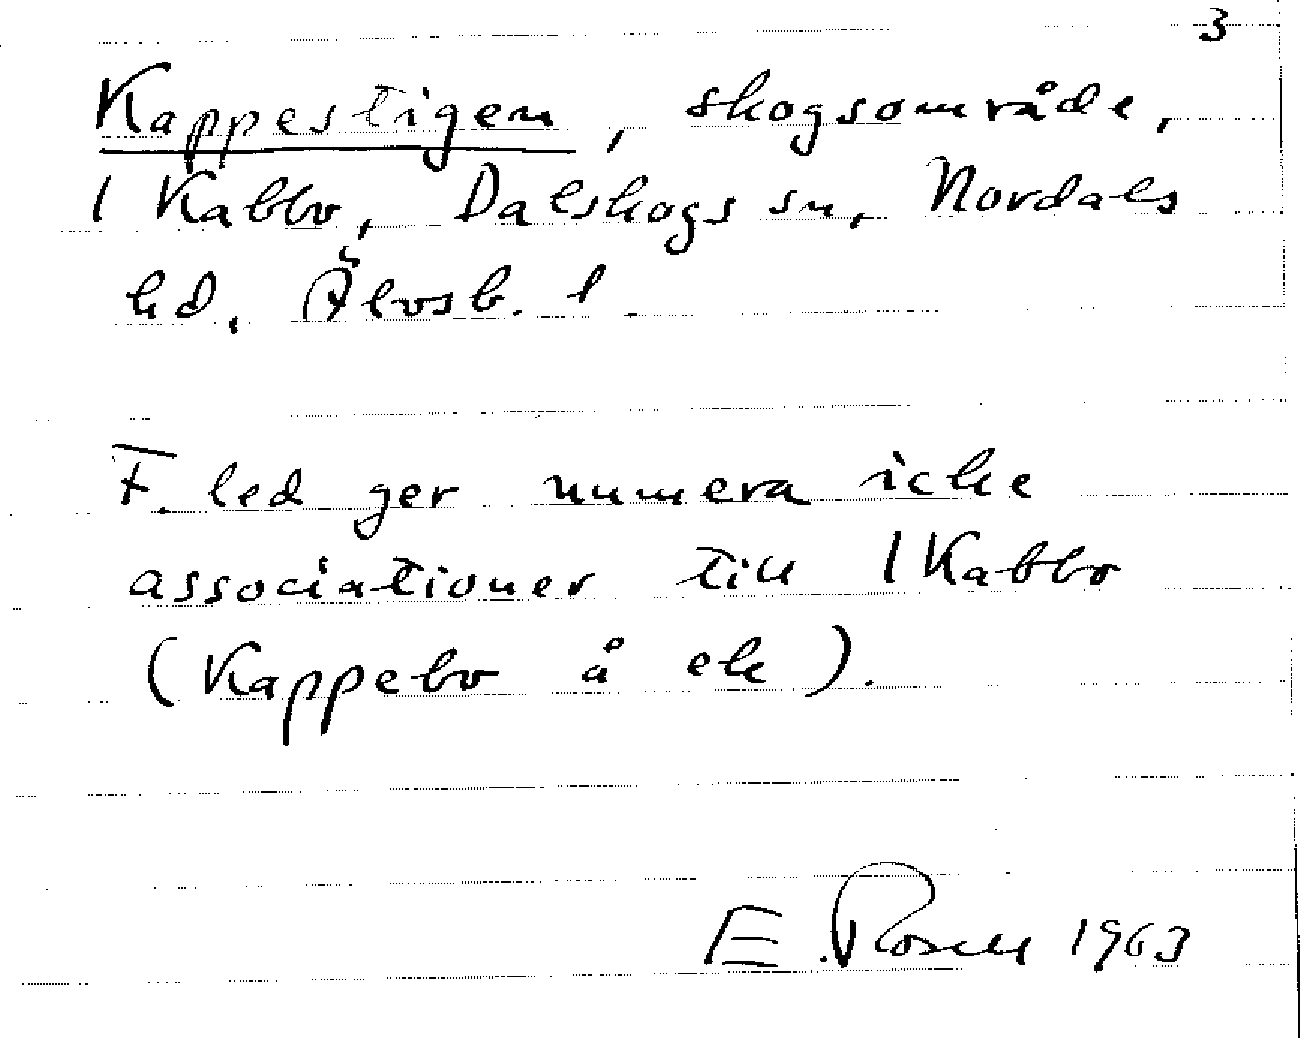 3
Kappestigen, skogsområde,
1 Kabbo, Dalskogs sn, Nordals
hd, Älvsb. l
F. led ger numera icke
associationer till 1 Kabbo
(Kappebo å ek).
E. Rosell 1963